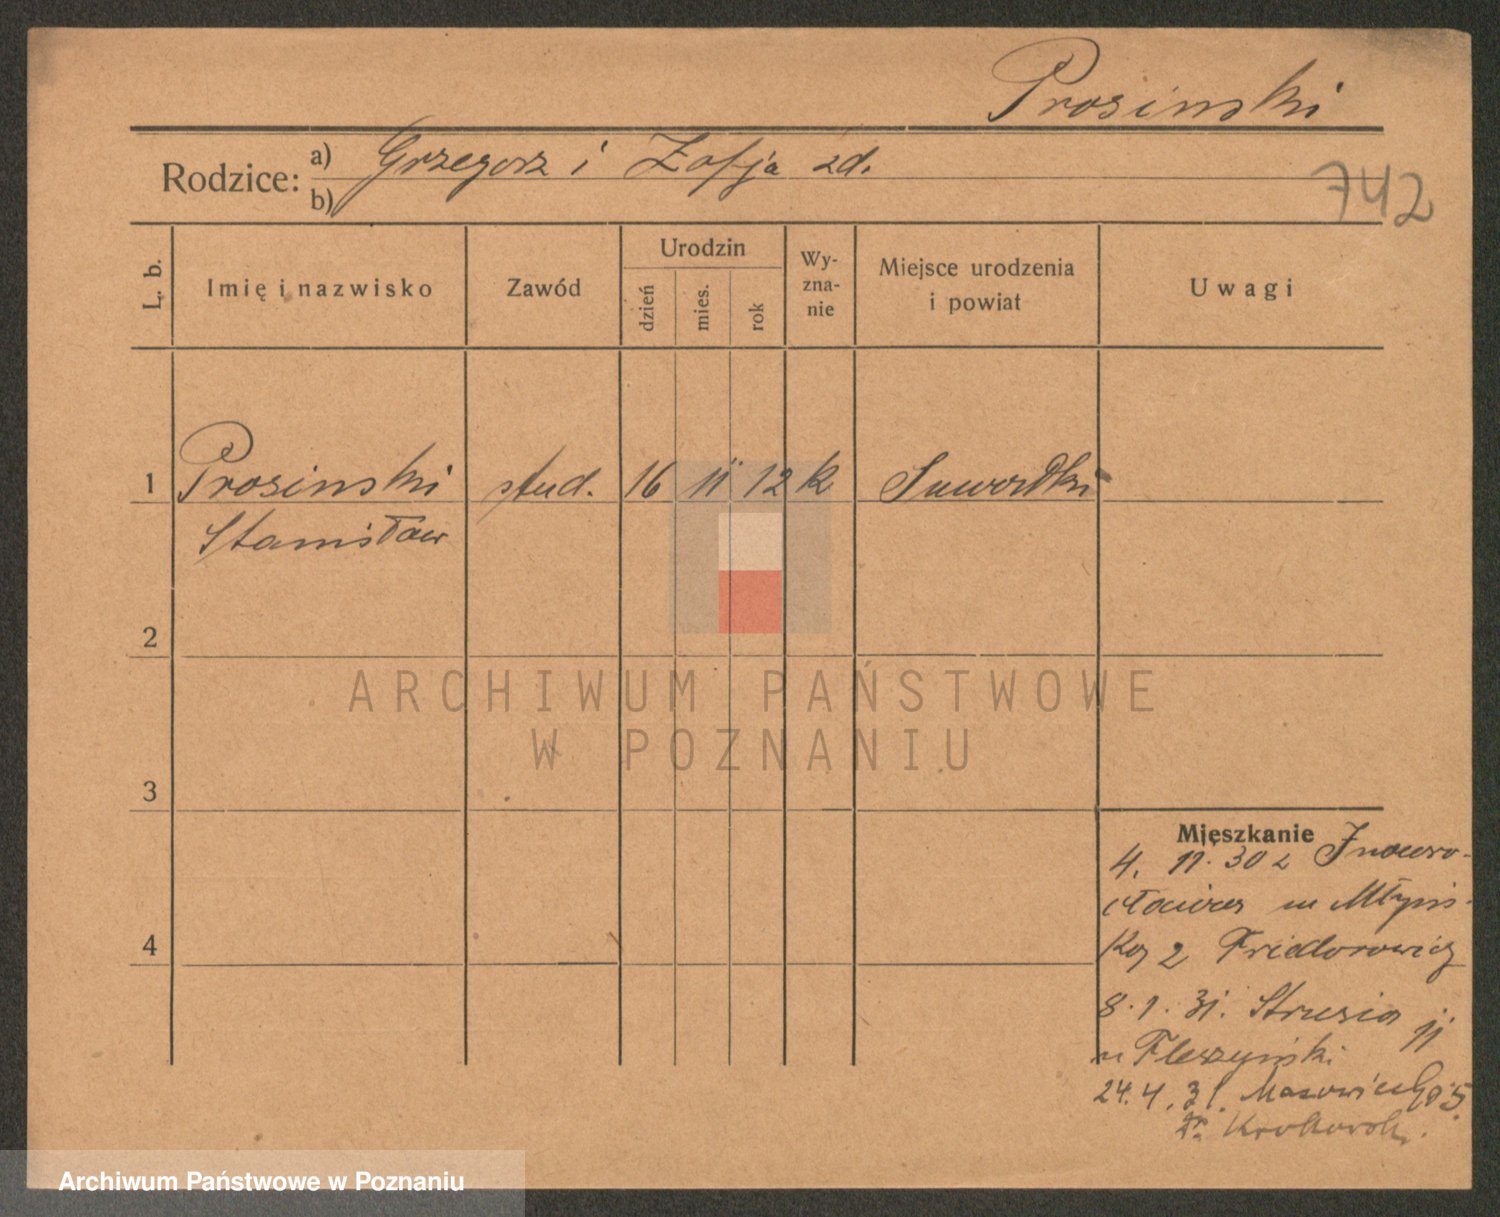 Prosinski
Rodzice: a) Grzegorz i Zofja zd.
b)
742
L. b.
Imię i nazwisko
Zawód
Urodzin
dzień
mies.
rok
Wy-
zna-
nie
Miejsce urodzenia
i powiat
Uwagi
1 Prosinski stud. 16 11 12 k Suwałki
Stanisław
2
3
4
Mieszkanie
4. 11. 30 z Inowro-
cławia m Młyńs-
ka 2 Friedorowicz
8.1.31. Strusia 11
u Fleszyński
24.4.31. Mazowiecka 5.
ARCHIWUM PAŃSTWOWE
W POZNANIU
Archiwum Państwowe w Poznaniu